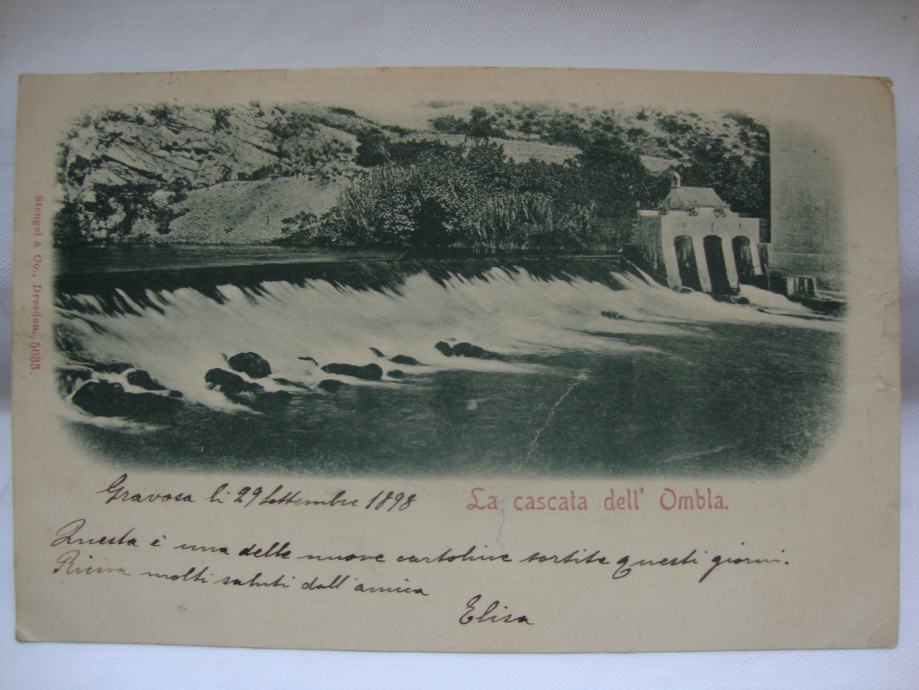 Stengel & Co., Dresden, 5033.
La cascata dell' Ombla.
Gravosa li 29 Settembre 1898
Questa è una delle nuove cartoline sortite questi giorni.
Riceva molti saluti dall'amica
Elisa